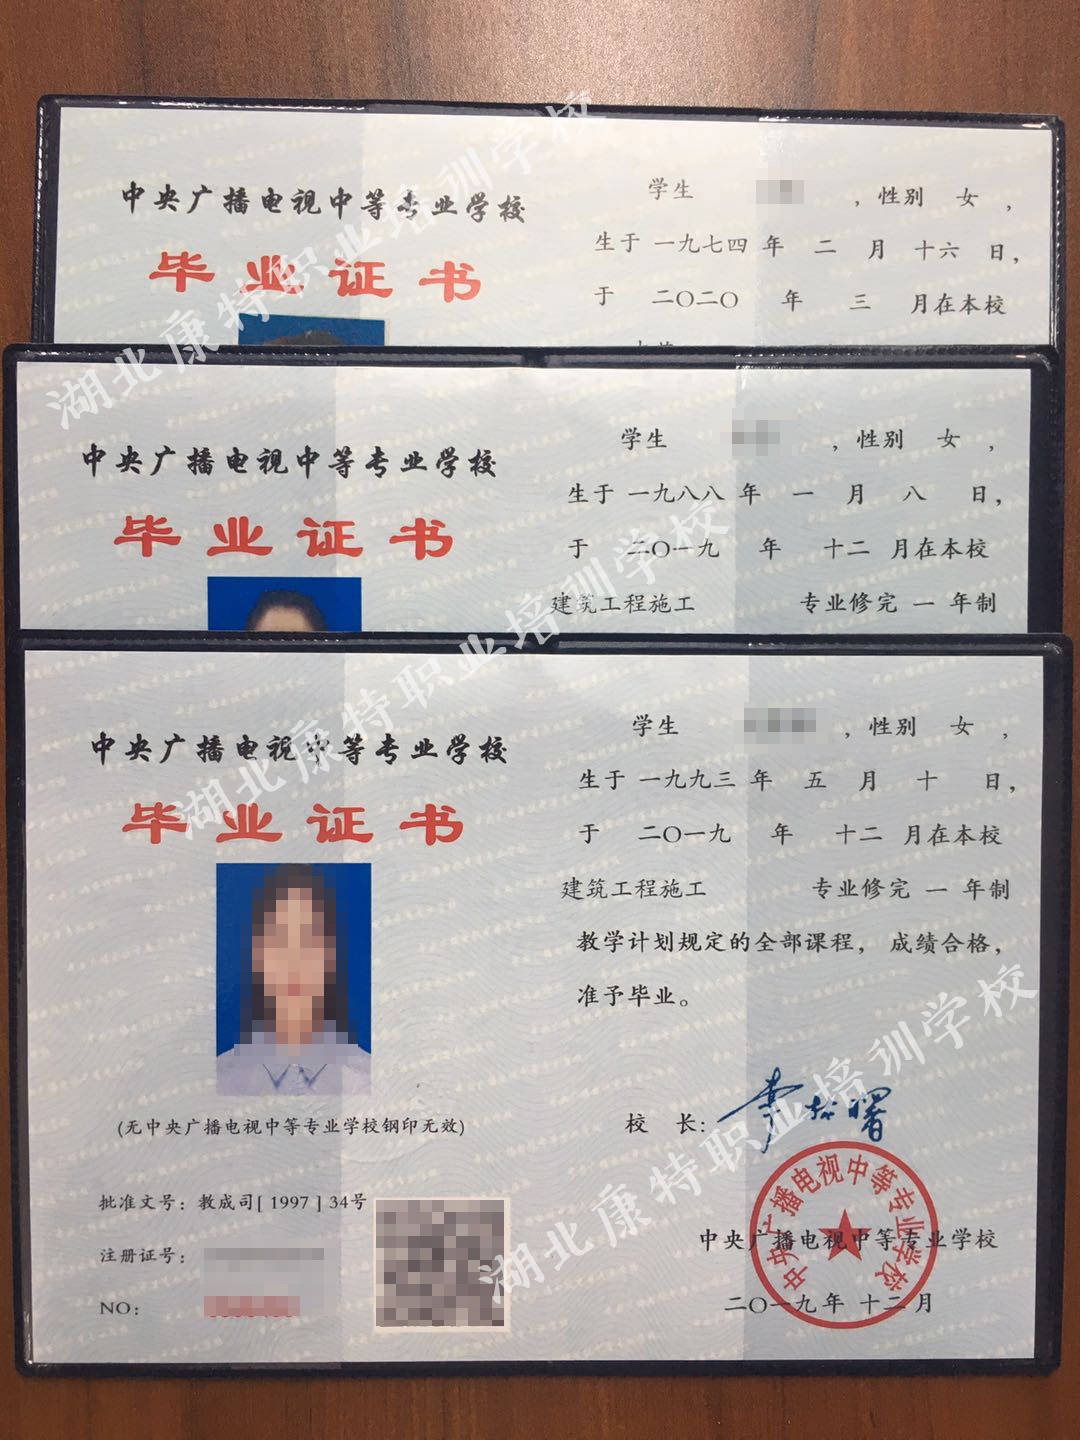 中央广播电视中等专业学校
毕业证书
学生 ，性别 女 ，
生于 一九七四 年 二 月 十六 日，
于 二〇二〇 年 三 月在本校
中央广播电视中等专业学校
毕业证书
学生 ，性别 女 ，
生于 一九八八 年 一 月 八 日，
于 二〇一九 年 十二 月在本校
建筑工程施工 专业修完 一 年制
中央广播电视中等专业学校
毕业证书
(无中央广播电视中等专业学校钢印无效)
批准文号：教成司[ 1997 ] 34号
注册证号：
NO：
学生 ，性别 女 ，
生于 一九九三 年 五 月 十 日，
于 二〇一九 年 十二 月在本校
建筑工程施工 专业修完 一 年制
教学计划规定的全部课程， 成绩合格，
准予毕业。
校 长：
中央广播电视中等专业学校
中央广播电视中等专业学校
二〇一九年 十二月
湖北康特职业培训学校
湖北康特职业培训学校
湖北康特职业培训学校